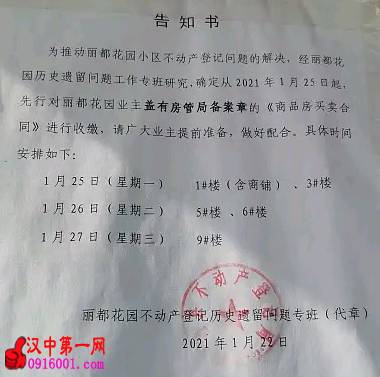 告知书
为推动丽都花园小区不动产登记问题的解决，经丽都花
园历史遗留问题工作专班研究，确定从2021年1月25日起，
先行对丽都花园业主盖有房管局备案章的《商品房买卖合
同》进行收缴，请广大业主提前准备，做好配合。具体时间
安排如下：
1月25日（星期一） 1#楼（含商铺）、3#楼
1月26日（星期二） 5#楼、6#楼
1月27日（星期三） 9#楼
不动产登
丽都花园不动产登记历史遗留问题专班（代章）
2021年1月22日
汉中第一网
0916001.com